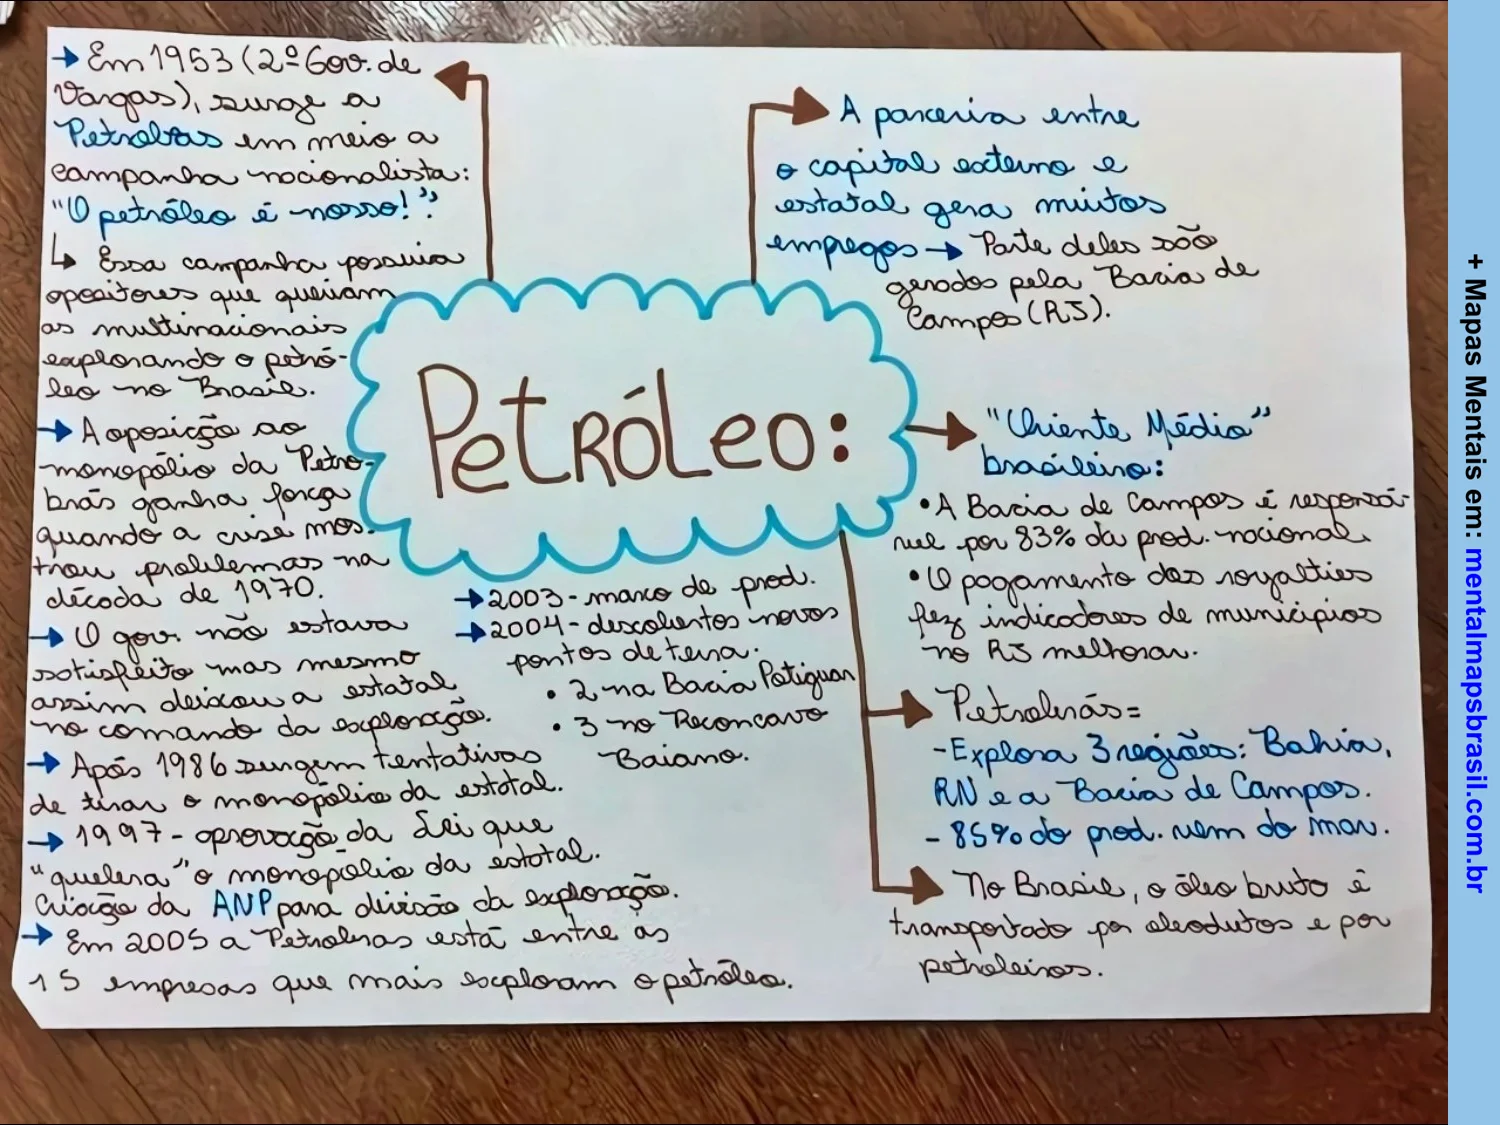 → Em 1953 (2º Gov. de
Vargas), surge a
Petrobras em meio a
campanha nacionalista:
"O petróleo é nosso!".
↳ Essa campanha possuia
opositores que queriam
as multinacionais
explorando o petró-
leo no Brasil.
→ A oposição ao
monopólio da Petro-
brás ganha força
quando a crise mos-
trou problemas na
década de 1970.
→ O gov. não estava
satisfeito mas mesmo
assim deixou a estatal
no comando da exploração.
→ Após 1986 surgem tentativas
de tirar o monopólio da estatal.
→ 1997 - aprovação da Lei que
"quebra" o monopólio da estatal.
Criação da ANP para divisão da exploração.
→ Em 2005 a Petrobras está entre as
15 empresas que mais exploram o petróleo.
Petróleo:
→ 2003 - marco de prod.
→ 2004 - descobertos novos
pontos de terra.
• 2 na Bacia Potiguar
• 3 no Reconcavo
Baiano.
A parceria entre
o capital externo e
estatal gera muitos
empregos → Parte deles são
gerados pela Bacia de
Campos (RJ).
"Oriente Médio"
brasileiro:
• A Bacia de Campos é responsá-
vel por 83% da prod. nacional.
• O pagamento dos royalties
fez indicadores de municípios
no RJ melhorar.
Petrobrás =
- Explora 3 regiões: Bahia,
RN e a Bacia de Campos.
- 85% do prod. vem do mar.
No Brasil, o óleo bruto é
transportado por oleodutos e por
petroleiros.
+ Mapas Mentais em: mentalmapsbrasil.com.br